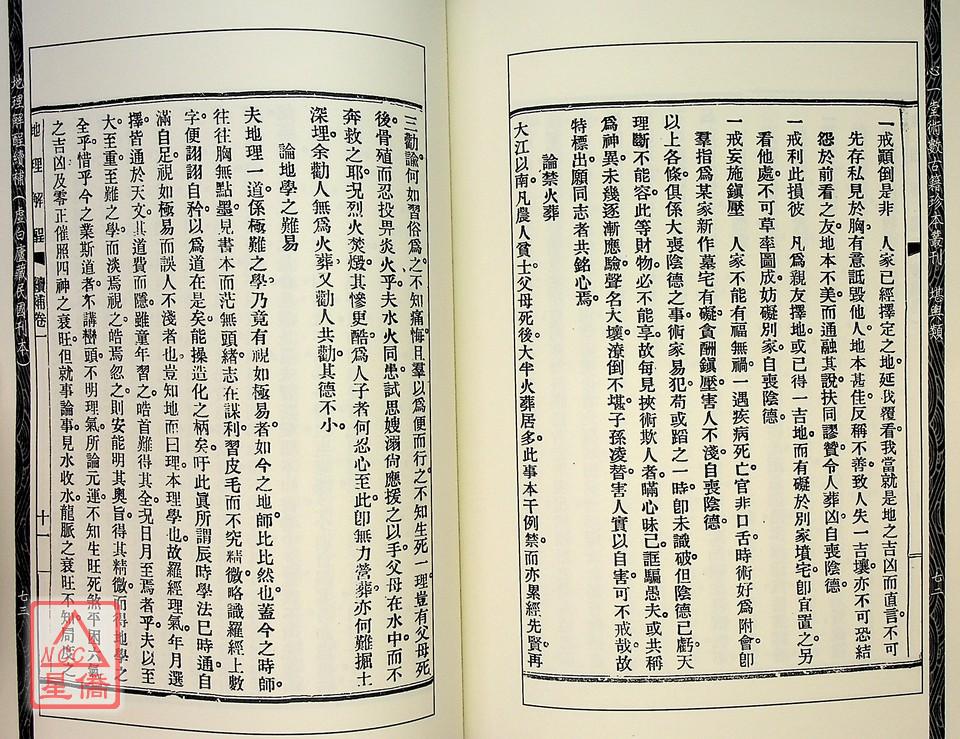 心一堂術數古籍珍本叢刊 堪輿類
一戒顚倒是非 人家已經擇定之地延我覆看我當就是地之吉凶而直言不可
先存私見於胸有意詆毀他人地本甚佳反稱不善致人失一吉壤亦不可恐結
怨於前看之友地本不美而通融其說扶同謬贊令人葬凶自喪陰德
一戒利此損彼 凡爲親友擇地或已得一吉地而有礙於別家墳宅卽宜置之另
看他處不可草率圖成妨礙別家自喪陰德
一戒妄施鎭壓 人家不能有福無禍一遇疾病死亡官非口舌時術好爲附會卽
羣指爲某家新作墓宅有礙貪酬鎭壓害人不淺自喪陰德
以上各條俱係大喪陰德之事術家易犯苟或蹈之一時卽未識破但陰德已虧天
理斷不能容此等財物必不能享故每見挾術欺人者瞞心昧己誆騙愚夫或共稱
爲神異未幾逐漸應驗聲名大壞潦倒不堪子孫凌替害人實以自害可不戒哉故
特標出願同志者共銘心焉
論禁火葬
大江以南凡農人貧士父母死後大半火葬居多此事本干例禁而亦累經先賢再
七二
三勸諭何如習俗爲之不知痛悔且羣以爲便而行之不知生死一理豈有父母死
後骨殖而忍投畀炎火乎夫水火同患試思嫂溺尙應援之以手父母在水中而不
奔救之耶况烈火焚燬其慘更酷爲人子者何忍心至此卽無力營葬亦何難掘土
深埋余勸人無爲火葬又勸人共勸其德不小
論地學之難易
夫地理一道係極難之學乃竟有視如極易者如今之地師比比然也蓋今之時師
往往胸無點墨見書本而茫無頭緒志在謀利習皮毛而不究精微略識羅經上數
字便詡詡自矜以爲道在是矣能操造化之柄矣吁此眞所謂辰時學法巳時通自
滿自足視如極易而誤人不淺者也豈知地而曰理本理學也故羅經理氣年月選
擇皆通於天文其道費而隱雖童年習之皓首難得其全况日月至焉者乎夫以至
大至重至難之學而淡焉視之皓焉忽之則安能明其奧旨得其精微而得地學之
全乎惜乎今之業斯道者不講巒頭不明理氣所論元運不知生旺死煞平因六氣
之吉凶及零正催照四神之衰旺但就事論事見水收水龍脈之衰旺不知問度之
地理解醒 續補卷一 十一
地理解醒續補(虛白廬藏民國刊本)
七三
NCC
星僑